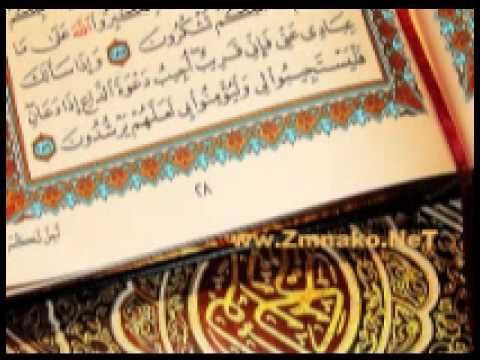 ٱللَّهَ عَلَىٰ مَا
تَشْكُرُونَ ١٨٥ وَإِذَا سَأَلَكَ
عِبَادِى عَنِّى فَإِنِّى قَرِيبٌ أُجِيبُ دَعْوَةَ ٱلدَّاعِ إِذَا دَعَانِ
فَلْيَسْتَجِيبُوا۟ لِى وَلْيُؤْمِنُوا۟ بِى لَعَلَّهُمْ يَرْشُدُونَ ١٨٦
٢٨
www.Zmnako.NeT